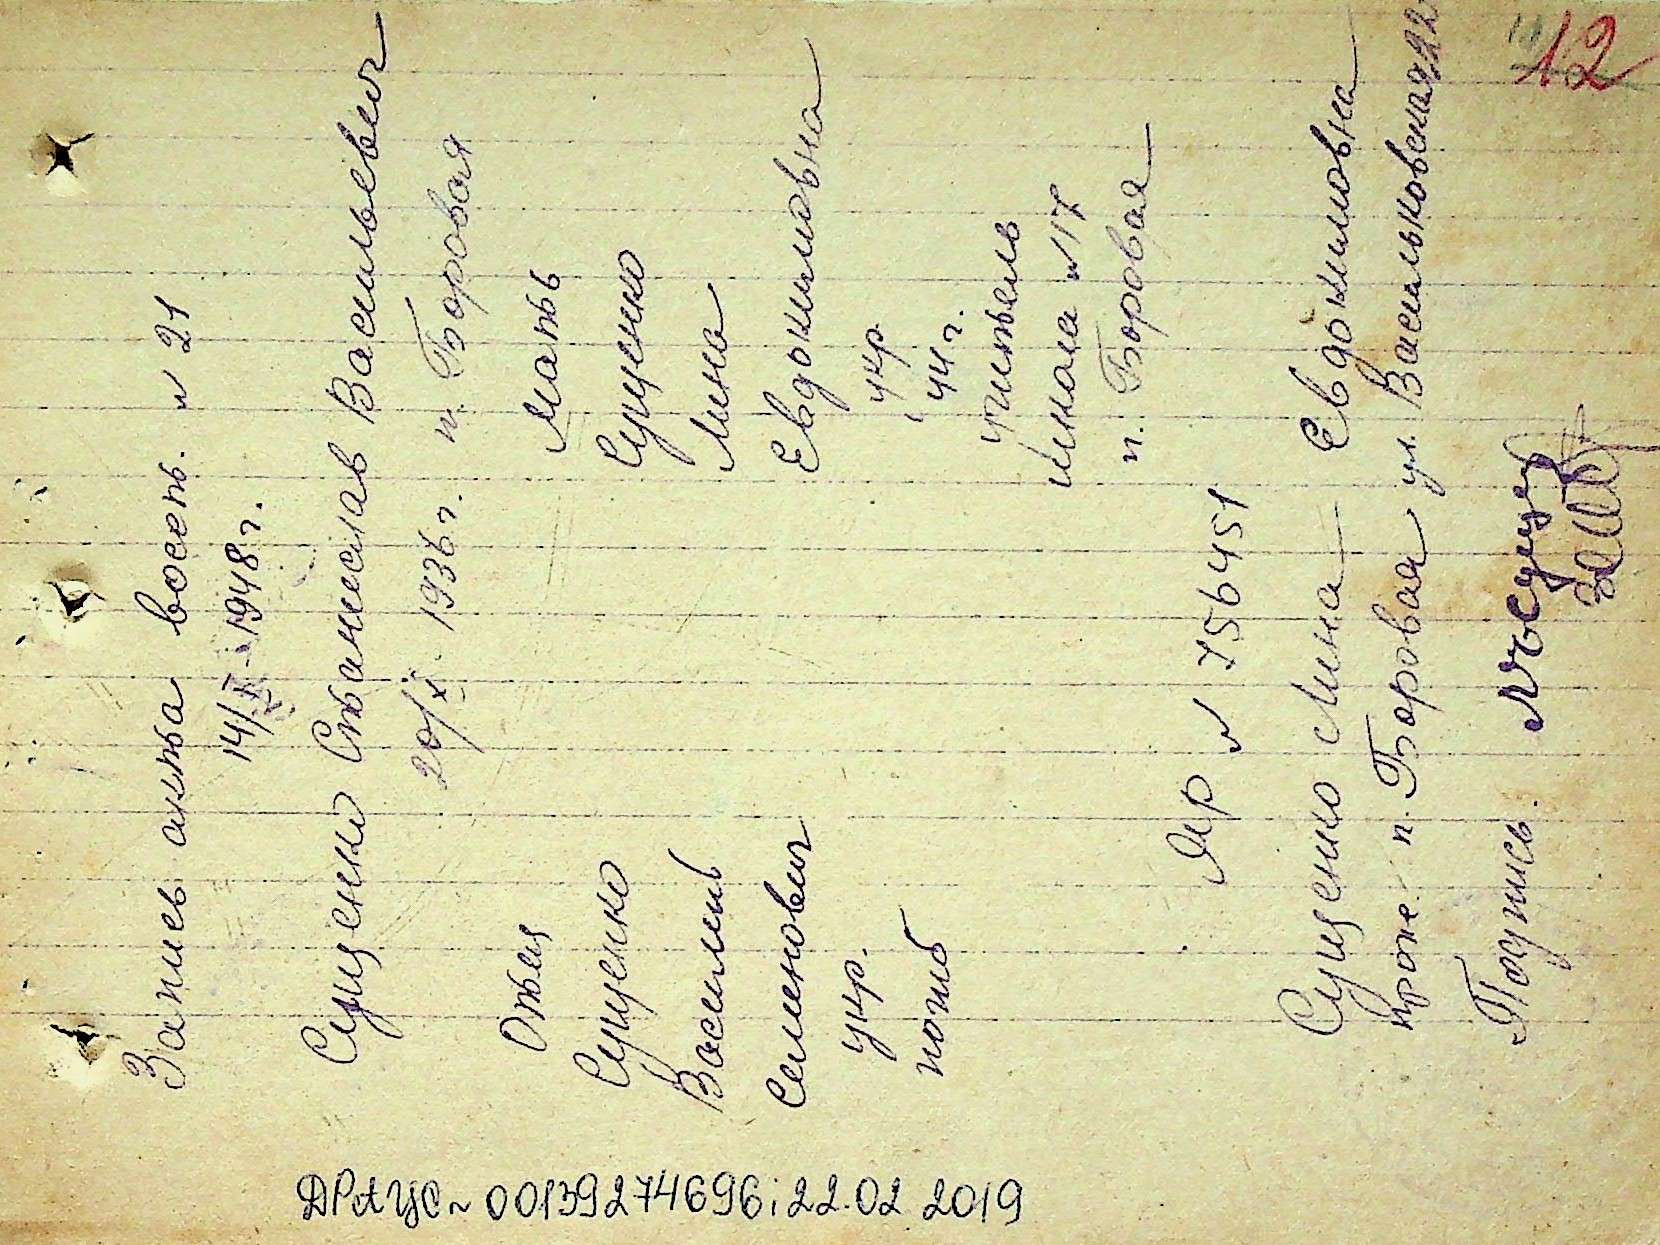 12
Запись акта восст. № 21
14/II-1948 г.
Сущенко Станислав Васильевич
20/XI. 1936 г. п. Боровая
Отец
Сущенко
Василий
Семенович
укр.
погиб
мать
Сущенко
Лина
Евдокимовна
укр
44 г.
учитель
школа № 17
п. Боровая
ЯР № 756451
Сущенко Лина Евдокимовна
прож. п. Боровая ул. Васильковская 22
Подпись.
ДРАЦС № 00139274696; 22.02 2019